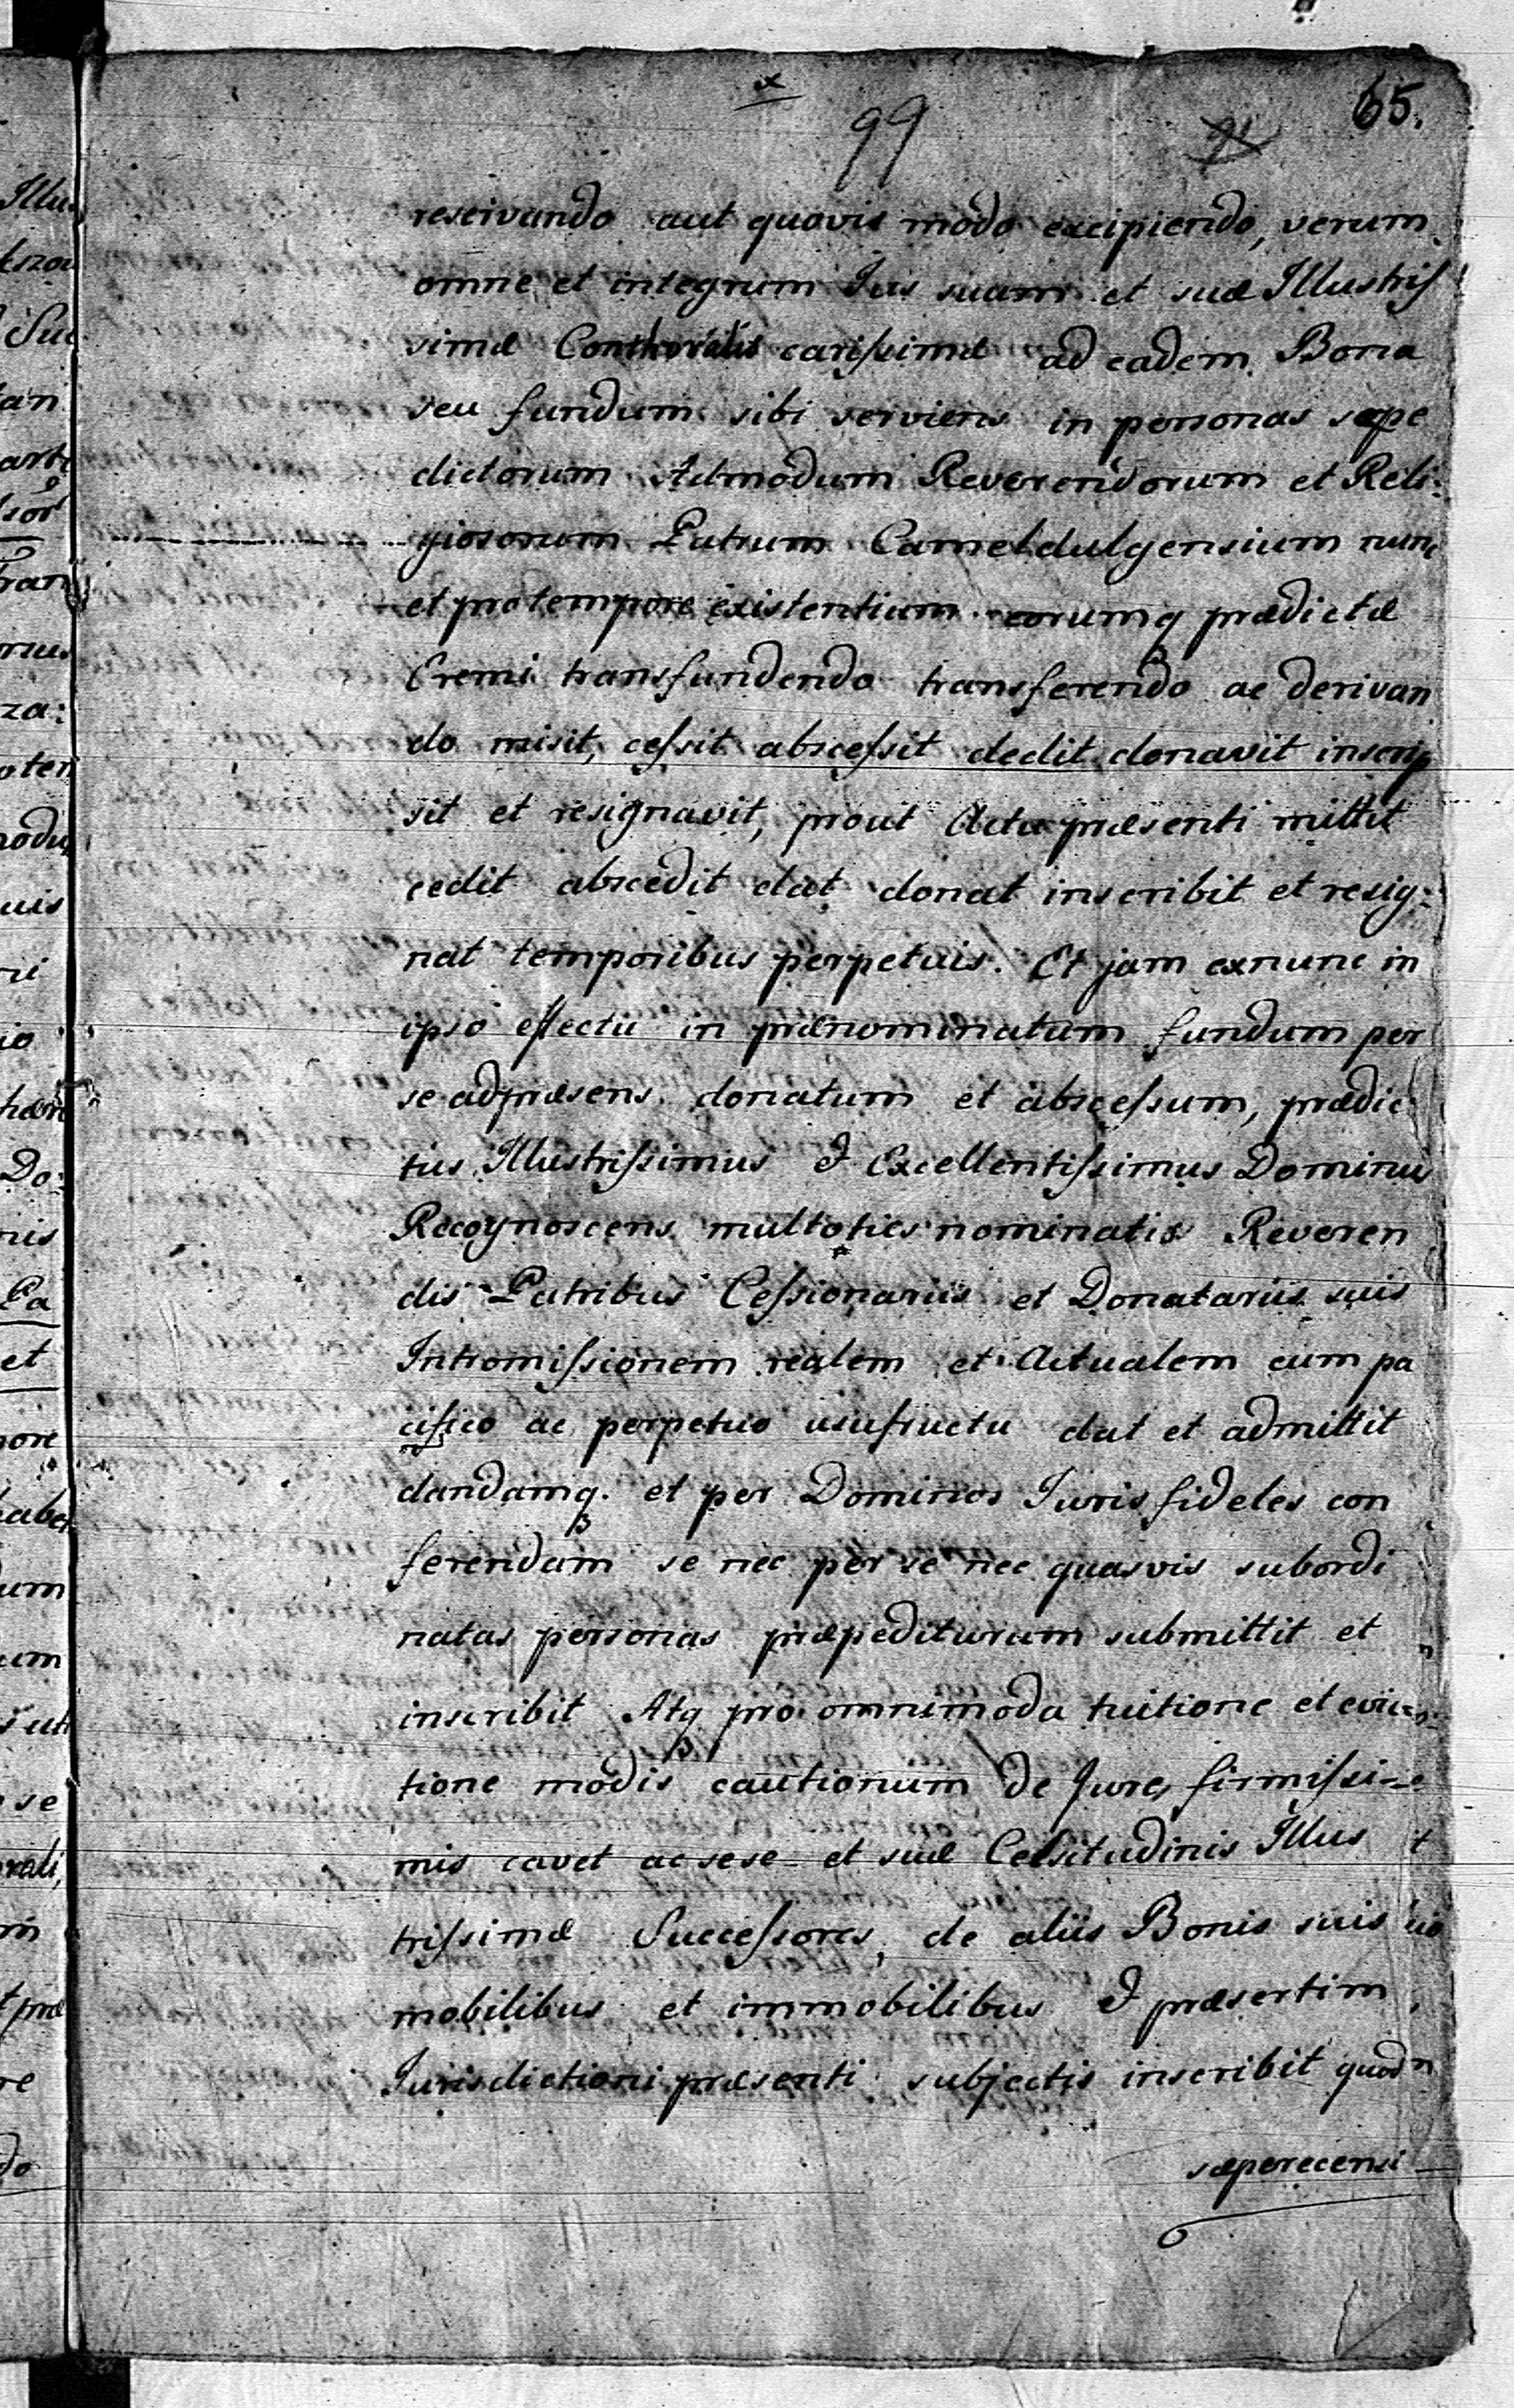 65.
99
reservando aut quovis modo excipiendo, verum
omne et integrum Jus suam et suæ Illustris
simæ Conthoralis carissimæ ad eadem Bona
seu fundum sibi serviens in personas sæpe
dictorum Admodum Reverendorum et Reli:
giosorum Patrum Cameldulgensium nunc
et protempore existentium eorumq prædictæ
Eremi transfundendo transferendo ac derivan
do misit, cessit abscessit dedit donavit inscrip
sit et resignavit, prout Actu præsenti mittit
cedit abscedit dat donat inscribit et resig:
nat temporibus perpetuis. Et jam exnunc in
ipso effectu in prænominatum fundum per
se adpræsens donatum et abscessum, prædic
tus Illustrissimus & Excellentissimus Dominus
Recognoscens multoties nominatis Reveren
dis Patribus Cessionariis et Donatariis suis
Intromissionem realem et Actualem cum pa
cifico ac perpetuo usufructu dat et admittit
dandamq. et per Dominos Juris fideles con
ferendam se nec per se nec quasvis subordi
natas personas præpediturum submittit et
inscribit Atq pro omnimoda tuitione et evic:
tione modis cautionum de Jure firmissi
mis cavet ac sese et suæ Celsitudinis Illus
trissimæ Successores, de aliis Bonis suis
mobilibus et immobilibus & præsertim
Jurisdictioni præsenti subjectis inscribit quod
sæperecensi